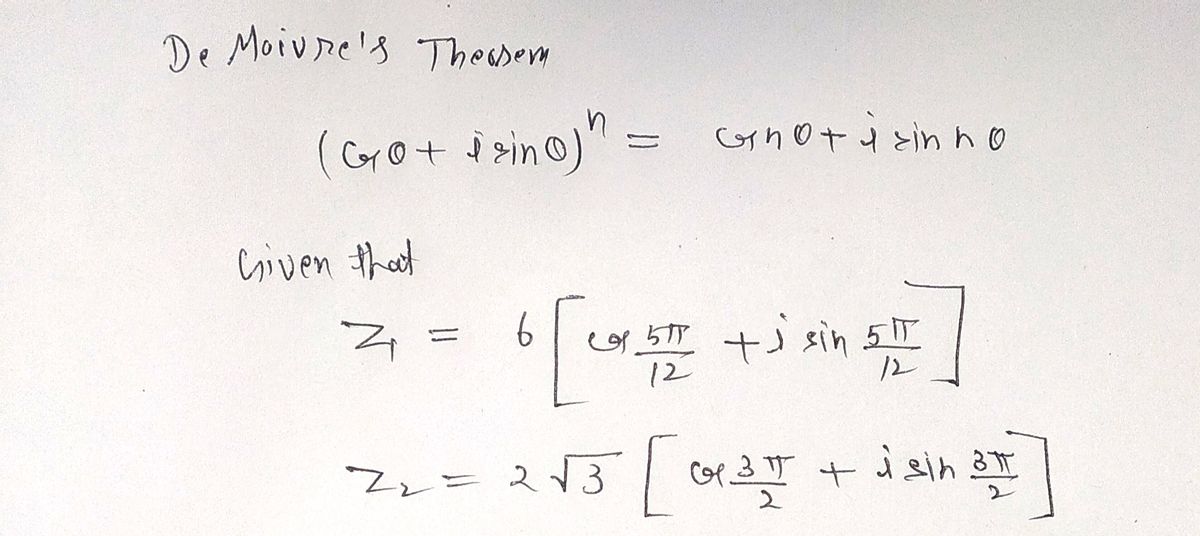 De Moivre's Theorem
(cos θ + i sin θ)^n = cos n θ + i sin n θ
Given that
Z₁ = 6 [ cos 5π/12 + i sin 5π/12 ]
Z₂ = 2√3 [ cos 3π/2 + i sin 3π/2 ]